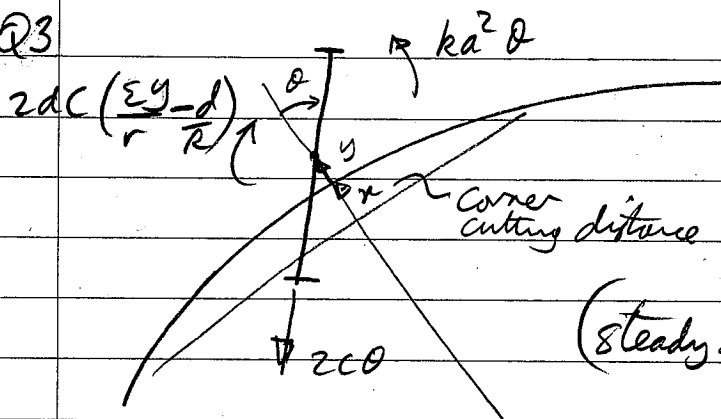 Q3
ka² θ
θ
2dC (Σy/r - d/R)
y
x
corner
cutting distance
(steady.
2Cθ